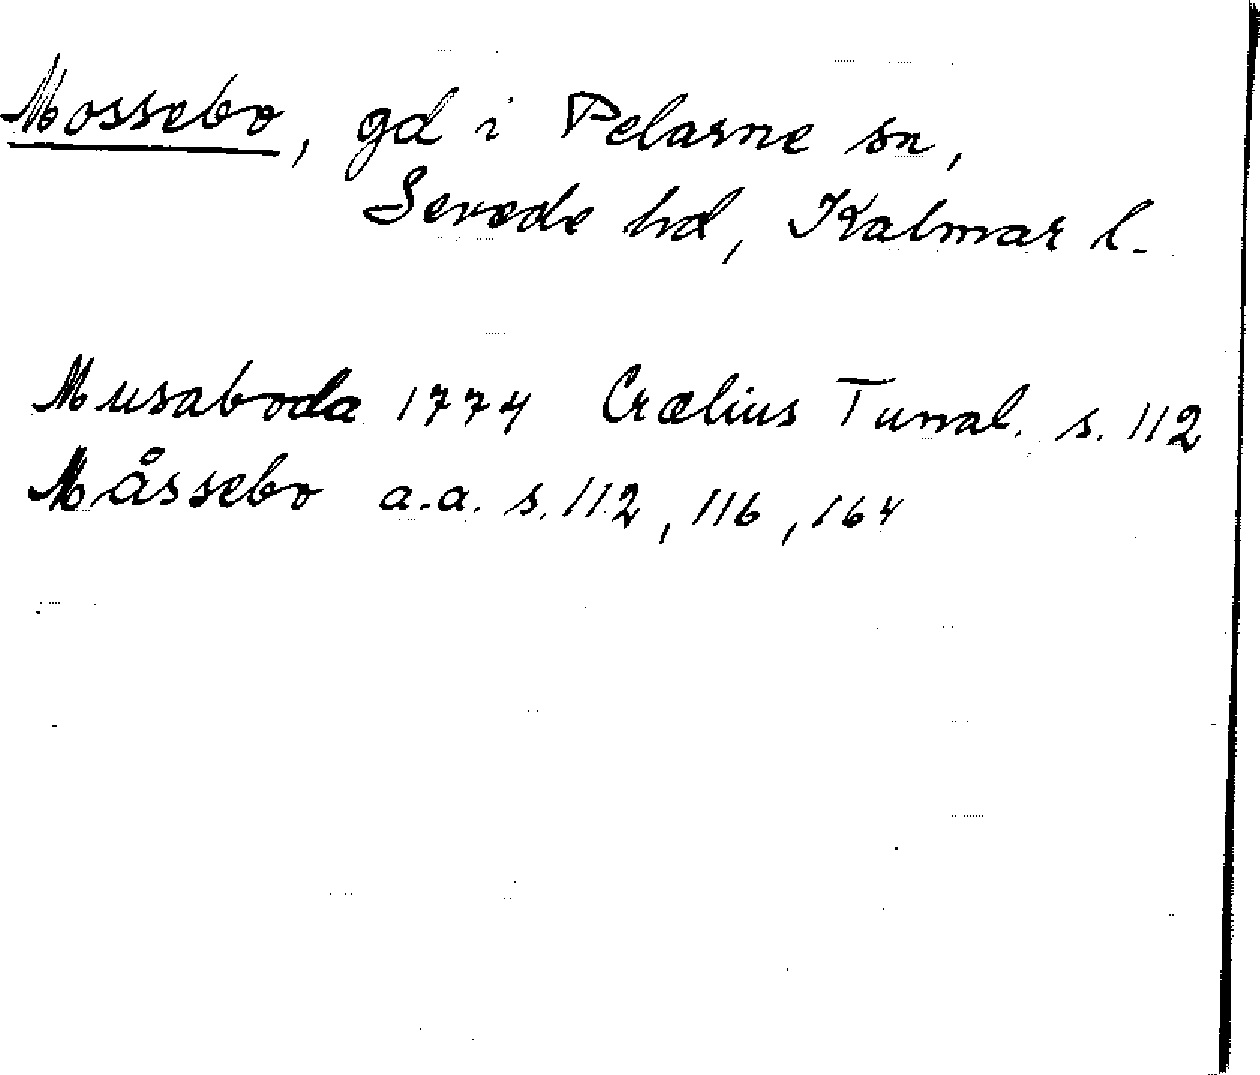 Mossebo, gd i Pelarne sn,
Sevede hd, Kalmar l.
Musaboda 1774 Crælius Tunal. s. 112
Måssebo a.a. s. 112, 116, 164